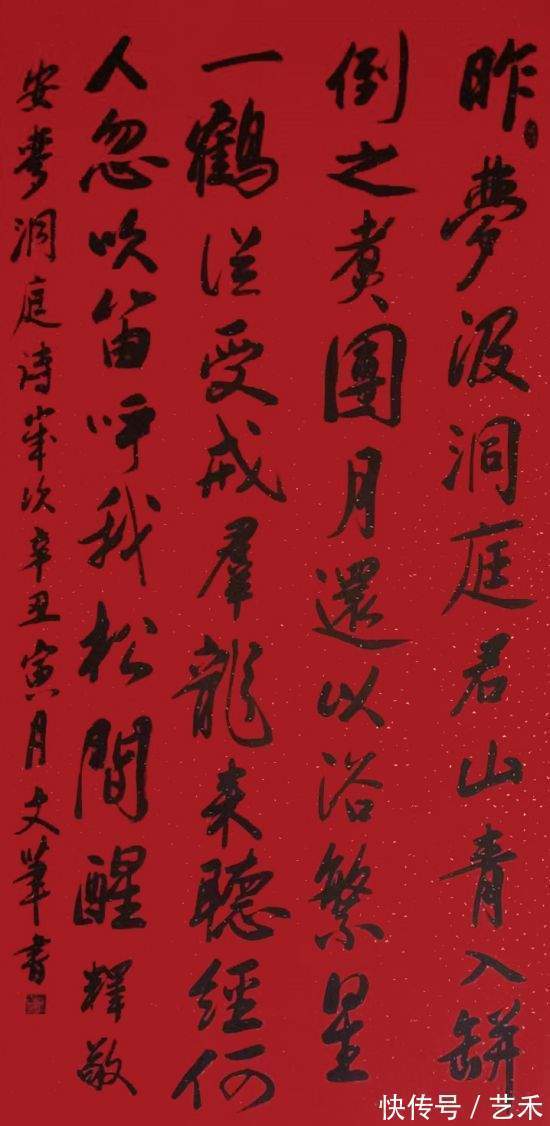 昨夢汲洞庭君山青入缾
倒之煮團月還以浴繁星
一鶴從受戒羣龍来聽經何
人忽吹笛呼我松間醒釋敬
安夢洞庭诗歲次辛丑寅月文書
快传号 / 艺禾